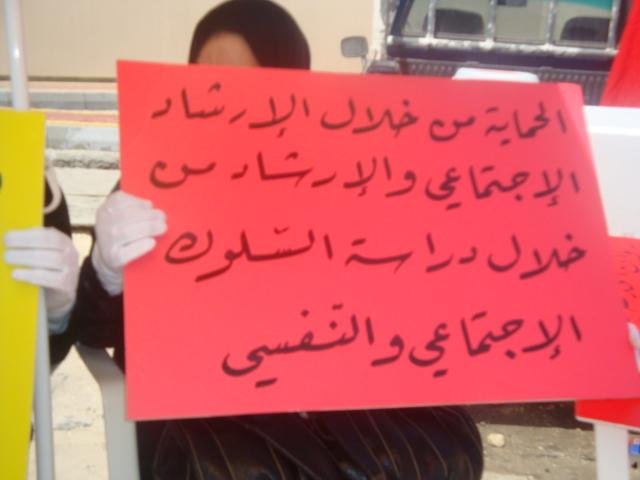 الحماية من خلال الإرشاد
الإجتماعي والإرشاد من
خلال دراسة السّلوك
الإجتماعي والنّفسي